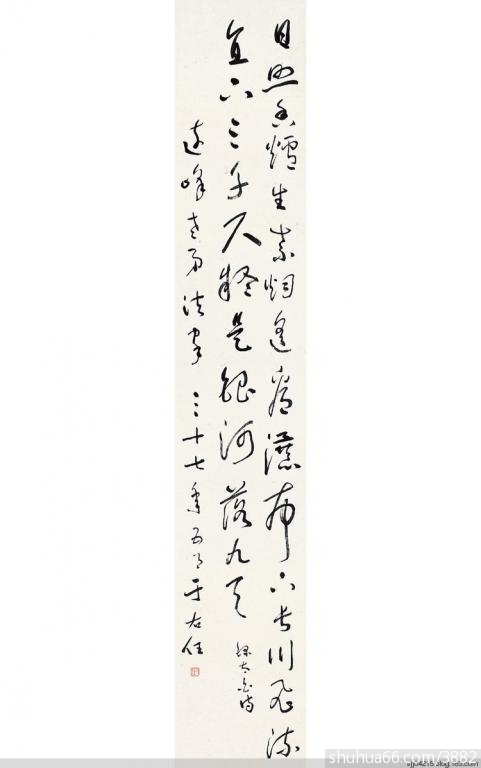 日照香爐生紫烟遥看瀑布下長川飛流
直下三千尺疑是銀河落九天
錄太白詩
遠峰老弟法家 三十七年五月 于右任
shuhua66.com/3882